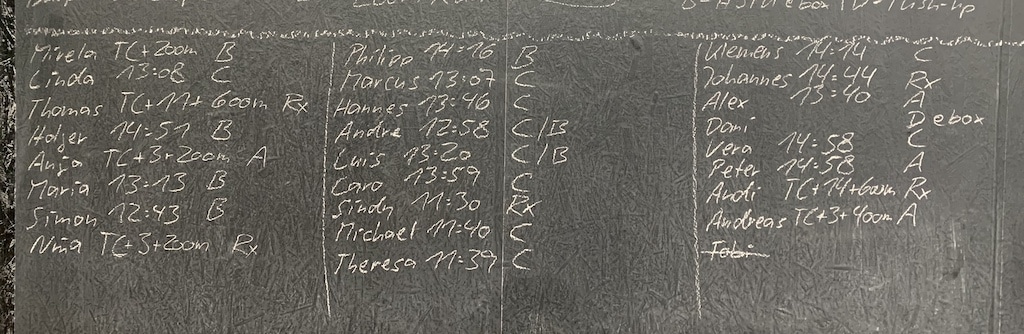 Mirela TC+200m B
Linda 13:08 C
Thomas TC+11+600m Rx
Holger 14:51 B
Anja TC+3+200m A
Maria 13:13 B
Simon 12:43 B
Nina TC+3+200m Rx
Philipp 14:16 B
Marcus 13:07 C
Hannes 13:46 C
Andre 12:58 C/B
Luis 13:20 C/B
Caro 13:59 C
Sindy 11:30 Rx
Michael 11:40 C
Theresa 11:39 C
Klemens 14:14 C
Johannes 14:44 Rx
Alex 13:40 A
Dani Debox
Vera 14:58 C
Peter 14:58 A
Andi TC+14+600m Rx
Andreas TC+3+400m A
Tobi